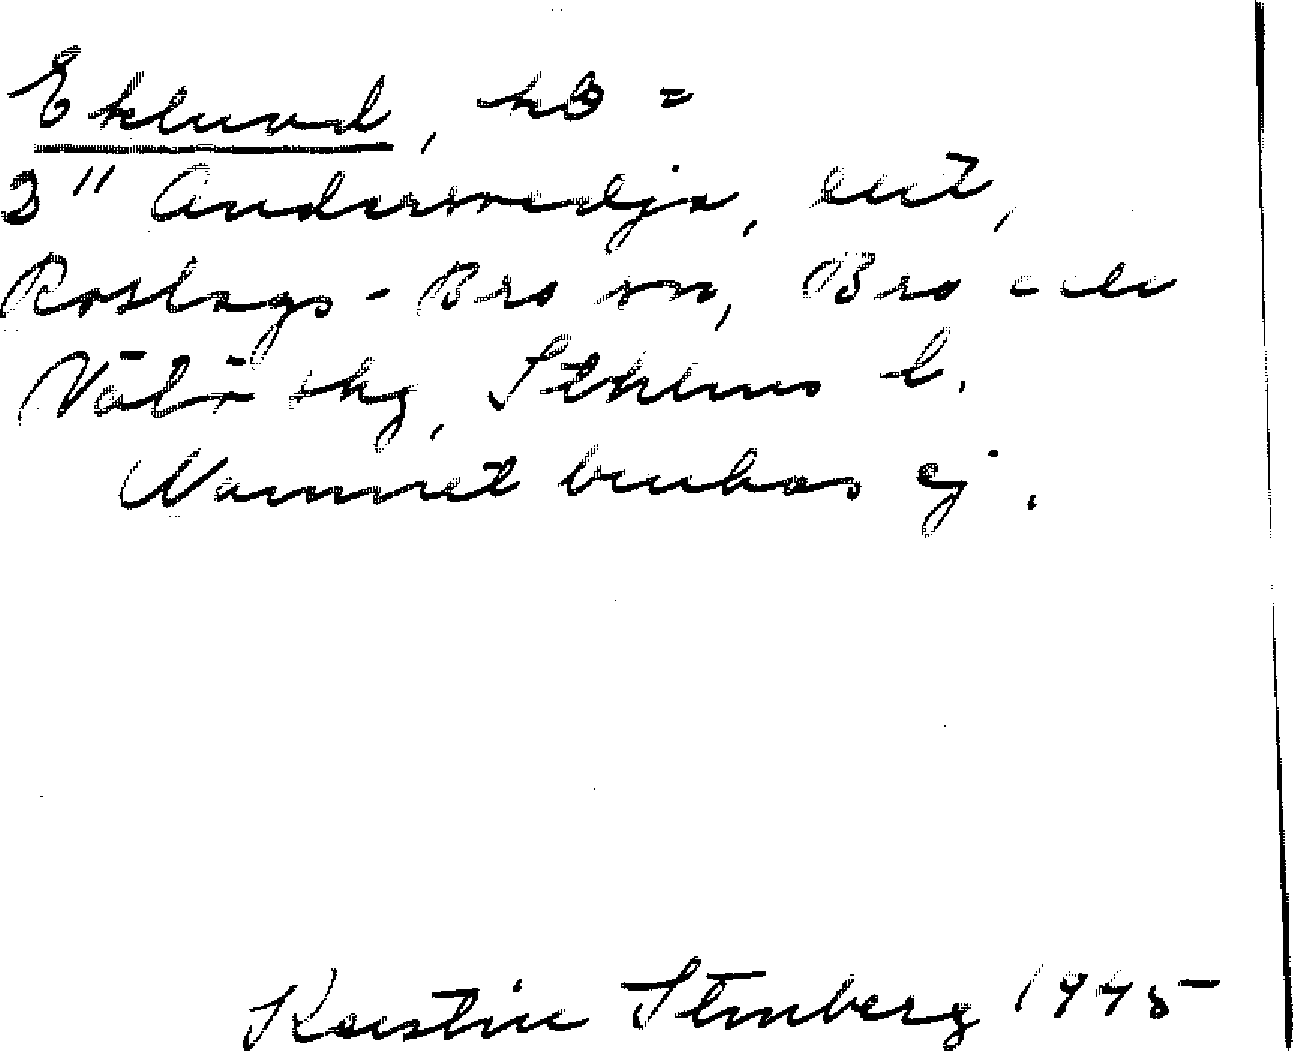 Eklund, hs =
3" Andersvedja, ent,
Roslags-Bro sn, Bro och
Vätö skg, Sthlms l.
Namnet brukas ej.
Kerstin Stenberg 1945